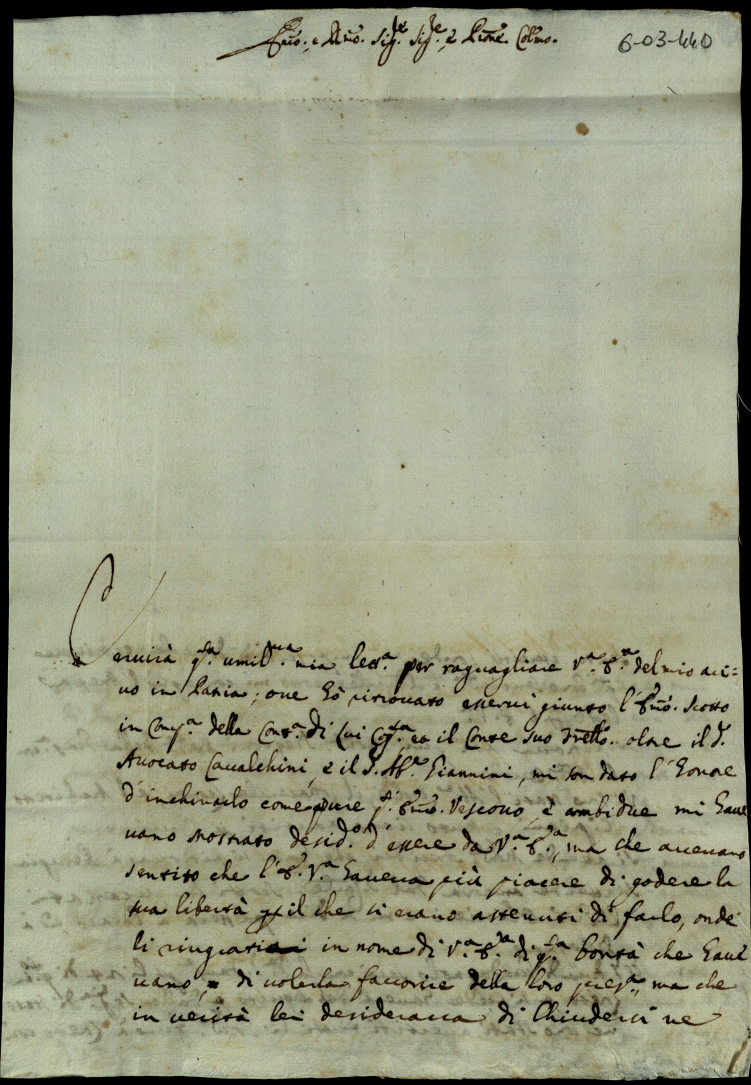 Emo. e Rmo. Sigre. Sigre. e Prone. Colmo.
6-03-440
Servirà qsta. umilma. mia letta. per raguagliare Va. Ema. del mio arri=
vo in Patria; ove hò ritrovato esservi giunto l'Emo. Scotto
in Compa. della Conta. di lui Coga., ed il Conte suo Frello. oltre il S.
Avocato Cavalchini, e il S. Giannini, mi son dato l'honore
d'inchinarlo come pure qto. Emo. Vescovo, e ambidue mi have
vano mostrato desido. d'essere da Va. Ema., ma che avevano
sentito che l'E. Va. haveva più piacere di godere la
sua libertà per il che si erano astenuti di farlo, onde
li ringratiai in nome di Va. Ema. di qsta. bontà che have
vano, di volerla favorire della loro preza., ma che
in verità lei desiderava di chiudersi ne